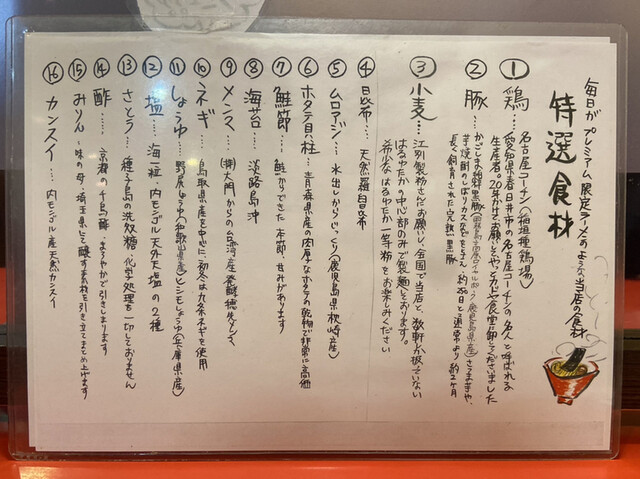 毎日がプレミアム限定ラーメンのような当店の食材
特選食材
① 鶏… 名古屋コーチン(稲垣種鶏場)
愛知県春日井市の名古屋コーチンの名人と呼ばれる
生産者。20年かけてお願いして
② 豚… かごしま
芋焼酎のしぼりカスなどを与え、約250日と通常より約2ヶ月
長く飼育された完熟黒豚
③ 小麦… 江別製粉さんにお願いし、全国で当店と、数軒しか扱っていない
はるゆたかの中心部のみで製麺しております。
希少なはるゆたか一等粉をお楽しみください
④ 昆布… 天然羅臼昆布
⑤ ムロアジ… 水出しからじっくり(鹿児島県枕崎産)
⑥ ホタテ貝柱… 青森県産の肉厚なホタテの乾物で非常に高価
⑦ 鮭節… 鮭からできた本節、甘みがあります
⑧ 海苔… 淡路島沖
⑨ メンマ… (株)大門からの台湾産発酵穂先メンマ
⑩ ネギ… 鳥取県産を中心に、初冬は九条ネギを使用
⑪ しょうゆ… 野尻しょうゆ(和歌山県産)ヒシモしょうゆ(兵庫県産)
⑫ 塩… 海一粒 内モンゴル天外天塩の2種
⑬ さとう… 種子島の洗双糖、化学処理を一切しておりません
⑭ 酢… 京都の千鳥酢、まろやかで引きしまります
⑮ みりん… 味の母、埼玉県にて醸す素材を引き立てまとめ上げます
⑯ カンスイ… 内モンゴル産天然カンスイ